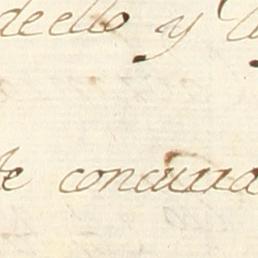 deello y
te concurra